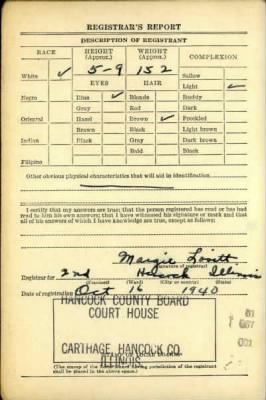 REGISTRAR'S REPORT
DESCRIPTION OF REGISTRANT
RACE HEIGHT (Approx.) WEIGHT (Approx.) COMPLEXION
5-9 152
White ✓ Sallow
EYES HAIR Light ✓
Negro Blue ✓ Blonde Ruddy
Gray Red Dark
Oriental Hazel Brown ✓ Freckled
Brown Black Light brown
Indian Black Gray Dark brown
Bald Black
Filipino
Other obvious physical characteristics that will aid in identification
I certify that my answers are true; that the person registered has read or has had
read to him his own answers; that I have witnessed his signature or mark and that
all of his answers of which I have knowledge are true, except as follows:
Margie Lovitt
(Signature of registrar)
Registrar for 2nd Hancock Illinois
(Precinct) (City or county) (State)
Date of registration Oct 16 1940
HANCOCK COUNTY BOARD
COURT HOUSE
CARTHAGE, HANCOCK CO.
ILLINOIS
(STAMP OF LOCAL BOARD)
(The stamp of the Local Board having jurisdiction of the registrant
shall be placed in the above space.)